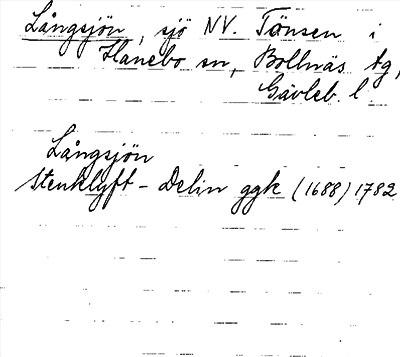 Långsjön, sjö NV. Tönsen i
Hanebo sn, Bollnäs tg,
Gävleb. l.
Långsjön
Stenklyft - Delin ggk (1688) 1782